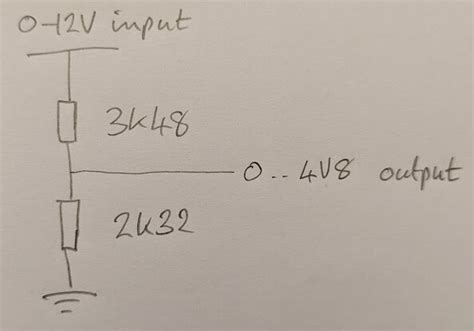 0-12V input
3k48
0.. 4V8 output
2k32